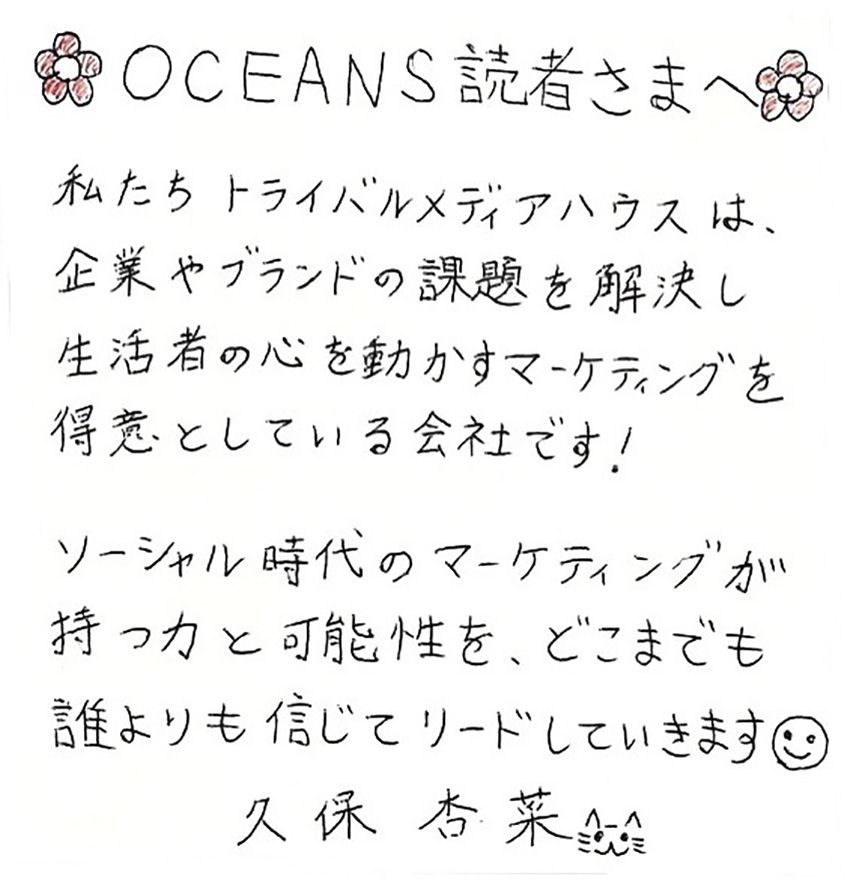 OCEANS読者さまへ
私たちトライバルメディアハウスは、
企業やブランドの課題を解決し
生活者の心を動かすマーケティングを
得意としている会社です!
ソーシャル時代のマーケティングが
持つ力と可能性を、どこまでも
誰よりも信じてリードしていきます
久保 杏菜